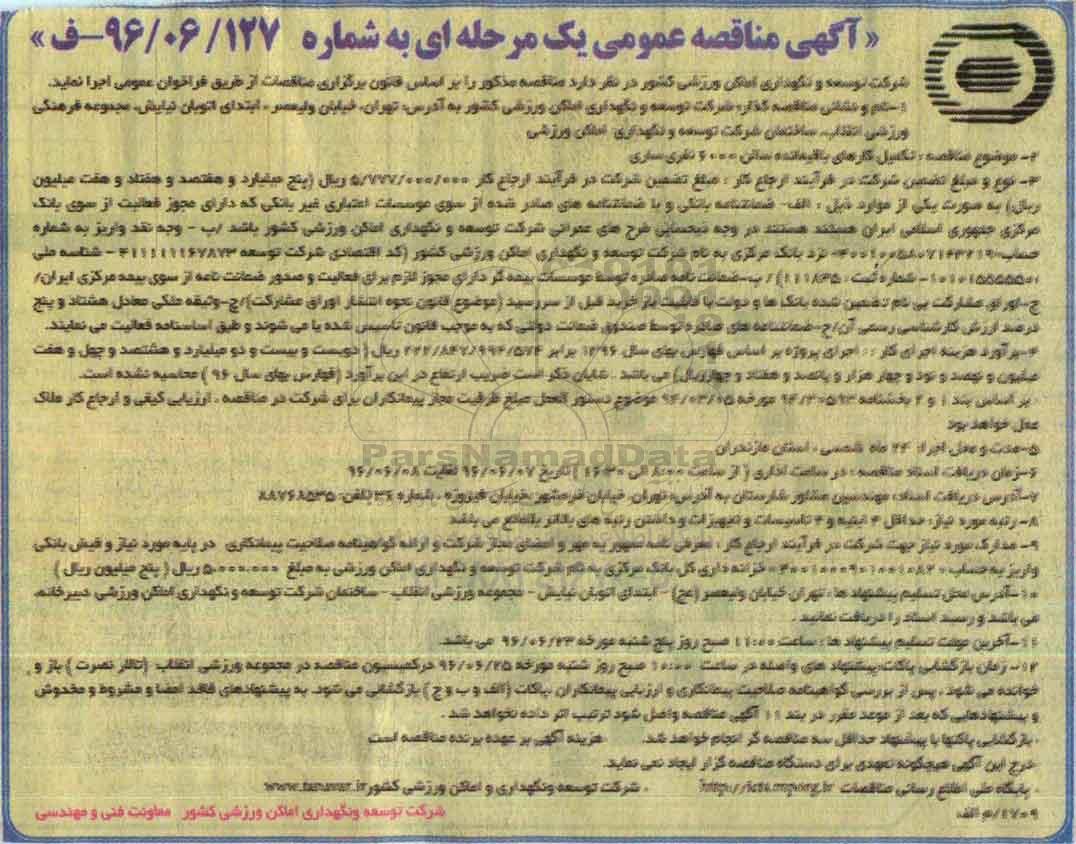 « آگهی مناقصه عمومی یک مرحله ای به شماره ۹۶/۰۶/۱۲۷-ف »
شرکت توسعه و نگهداری اماکن ورزشی کشور در نظر دارد مناقصه مذکور را بر اساس قانون برگزاری مناقصات از طریق فراخوان عمومی اجرا نماید.
۱-نام و نشانی مناقصه گذار: شرکت توسعه و نگهداری اماکن ورزشی کشور به آدرس: تهران، خیابان ولیعصر، ابتدای اتوبان نیایش، مجموعه فرهنگی
ورزشی انقلاب، ساختمان شرکت توسعه و نگهداری اماکن ورزشی
۲- موضوع مناقصه : تکمیل کارهای باقیمانده سالن ۶۰۰۰ نفری ساری
۳- نوع و مبلغ تضمین شرکت در فرآیند ارجاع کار : مبلغ تضمین شرکت در فرآیند ارجاع کار ۵/۷۷۷/۰۰۰/۰۰۰ ریال (پنج میلیارد و هفتصد و هفتاد و هفت میلیون
ریال) به صورت یکی از موارد ذیل : الف- ضمانتنامه بانکی و یا ضمانتنامه های صادر شده از سوی موسسات اعتباری غیر بانکی که دارای مجوز فعالیت از سوی بانک
مرکزی جمهوری اسلامی ایران هستند هستند در وجه ذیحسابی طرح های عمرانی شرکت توسعه و نگهداری اماکن ورزشی کشور باشد /ب - وجه نقد واریز به شماره
حساب نزد بانک مرکزی به نام شرکت توسعه و نگهداری اماکن ورزشی کشور (کد اقتصادی شرکت توسعه ۴۱۱۱۱۱۱۶۷۸۷۳ - شناسه ملی
شماره ثبت : ۱۱۱۸۳۵) / پ-ضمانت نامه صادره توسط موسسات بیمه گر دارای مجوز لازم برای فعالیت و صدور ضمانت نامه از سوی بیمه مرکزی ایران/
ج-اوراق مشارکت بی نام تضمین شده بانک ها و دولت با قابلیت باز خرید قبل از سررسید (موضوع قانون نحوه انتشار اوراق مشارکت)/چ-وثیقه ملکی معادل هشتاد و پنج
درصد ارزش کارشناسی رسمی آن/ح-ضمانتنامه های صادره توسط صندوق ضمانت دولتی که به موجب قانون تاسیس شده یا می شوند و طبق اساسنامه فعالیت می نمایند.
۴-برآورد هزینه اجرای کار : : اجرای پروژه بر اساس فهارس بهای سال ۱۳۹۶ برابر ۲۲۲/۸۴۷/۹۹۴/۵۷۴ ریال( دویست و بیست و دو میلیارد و هشتصد و چهل و هفت
میلیون و نهصد و نود و چهار هزار و پانصد و هفتاد و چهارریال) می باشد . شایان ذکر است ضریب ارتفاع در این برآورد (فهارس بهای سال ۹۶ ) محاسبه نشده است.
بر اساس بند ۱ و ۲ بخشنامه ۹۴/۳۰۵۹۳ مورخه ۹۴/۰۳/۰۵ موضوع دستور العمل مبلغ ظرفیت مجاز پیمانکاران برای شرکت در مناقصه ، ارزیابی کیفی و ارجاع کار ملاک
عمل خواهد بود
۵-مدت و محل اجرا: ۲۴ ماه شمسی ، استان مازندران
۶-زمان دریافت اسناد مناقصه : در ساعت اداری ( از ساعت ۸:۰۰ الی ۱۶:۳۰ ) تاریخ ۹۶/۰۶/۰۷ لغایت ۹۶/۰۶/۰۸
۷-آدرس دریافت اسناد: مهندسین مشاور شارستان به آدرس: تهران، خیابان خرمشهر ،خیابان فیروزه ، شماره ۳۶ تلفن: ۸۸۷۶۸۵۳۵
۸- رتبه مورد نیاز: حداقل ۴ ابنیه و ۴ تاسیسات و تجهیزات و داشتن رتبه های بالاتر بلامانع می باشد
۹- مدارک مورد نیاز جهت شرکت در فرآیند ارجاع کار : معرفی نامه ممهور به مهر و امضای مجاز شرکت و ارائه گواهینامه صلاحیت پیمانکاری در پایه مورد نیاز و فیش بانکی
واریز به حساب خزانه داری کل بانک مرکزی به نام شرکت توسعه و نگهداری اماکن ورزشی به مبلغ ۵.۰۰۰.۰۰۰ ریال ( پنج میلیون ریال )
۱۰-آدرس محل تسلیم پیشنهاد ها : تهران خیابان ولیعصر (عج) - ابتدای اتوبان نیایش - مجموعه ورزشی انقلاب - ساختمان شرکت توسعه و نگهداری اماکن ورزشی دبیرخانه،
می باشد و رسید اسناد را دریافت نمایند .
۱۱-آخرین مهلت تسلیم پیشنهاد ها : ساعت ۱۱:۰۰ صبح روز پنج شنبه مورخه ۹۶/۰۶/۲۳ می باشد.
۱۲- زمان بازگشایی پاکات:پیشنهاد های واصله در ساعت ۱۰:۰۰ صبح روز شنبه مورخه ۹۶/۰۶/۲۵ درکمیسیون مناقصه در مجموعه ورزشی انقلاب (تالار نصرت ) باز و
خوانده می شود . پس از بررسی گواهینامه صلاحیت پیمانکاری و ارزیابی پیمانکاران ،پاکات (الف و ب و ج ) بازگشائی می شود. به پیشنهادهای فاقد امضا و مشروط و مخدوش
و پیشنهادهایی که بعد از موعد مقرر در بند ۱۱ آگهی مناقصه واصل شود ترتیب اثر داده نخواهد شد .
بازگشایی پاکتها با پیشنهاد حداقل سه مناقصه گر انجام خواهد شد. هزینه آگهی بر عهده برنده مناقصه است
درج این آگهی هیچگونه تعهدی برای دستگاه مناقصه گزار ایجاد نمی نماید.
پایگاه ملی اطلاع رسانی مناقصات http://iets.mporg.ir . شرکت توسعه ونگهداری و اماکن ورزشی کشور www.tanavar.ir
شرکت توسعه ونگهداری اماکن ورزشی کشور معاونت فنی و مهندسی
ParsNamadData